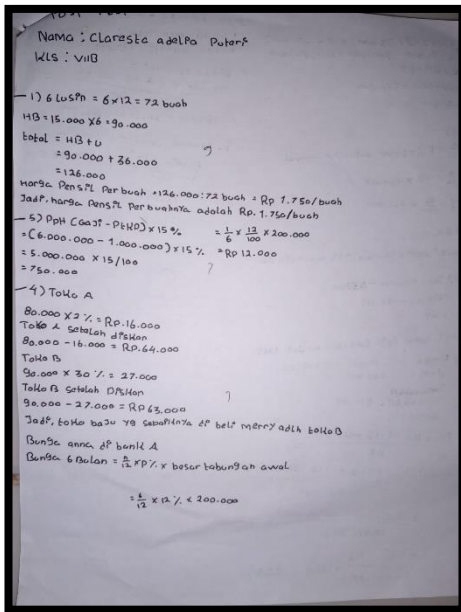 Nama : Claresta adelpa Puteri
Kls : VIIB
1) 6 Lusin = 6 x 12 = 72 buah
HB = 15.000 x 6 = 90.000
total = HB + U
= 90.000 + 36.000
= 126.000
Harga Pensil Per buah = 126.000 : 72 buah = Rp 1.750/buah
Jadi, harga Pensil Per buahnya adalah Rp. 1.750/buah
5) PpH (Gaji - PtKP) x 15 % = 1/6 x 12/100 x 200.000
= (6.000.000 - 1.000.000) x 15 % = Rp 12.000
= 5.000.000 x 15/100
= 750.000
4) Toko A
80.000 x 2 % = Rp. 16.000
Toko setelah diskon
80.000 - 16.000 = Rp. 64.000
Toko B
90.000 x 30 % = 27.000
Toko B Setelah Diskon
90.000 - 27.000 = Rp 63.000
Jadi, toko baju yg sebaiknya di beli merry adlh toko B
Bunga anna di bank A
Bunga 6 Bulan = n/12 x P % x besar tabungan awal
= 6/12 x 12 % x 200.000